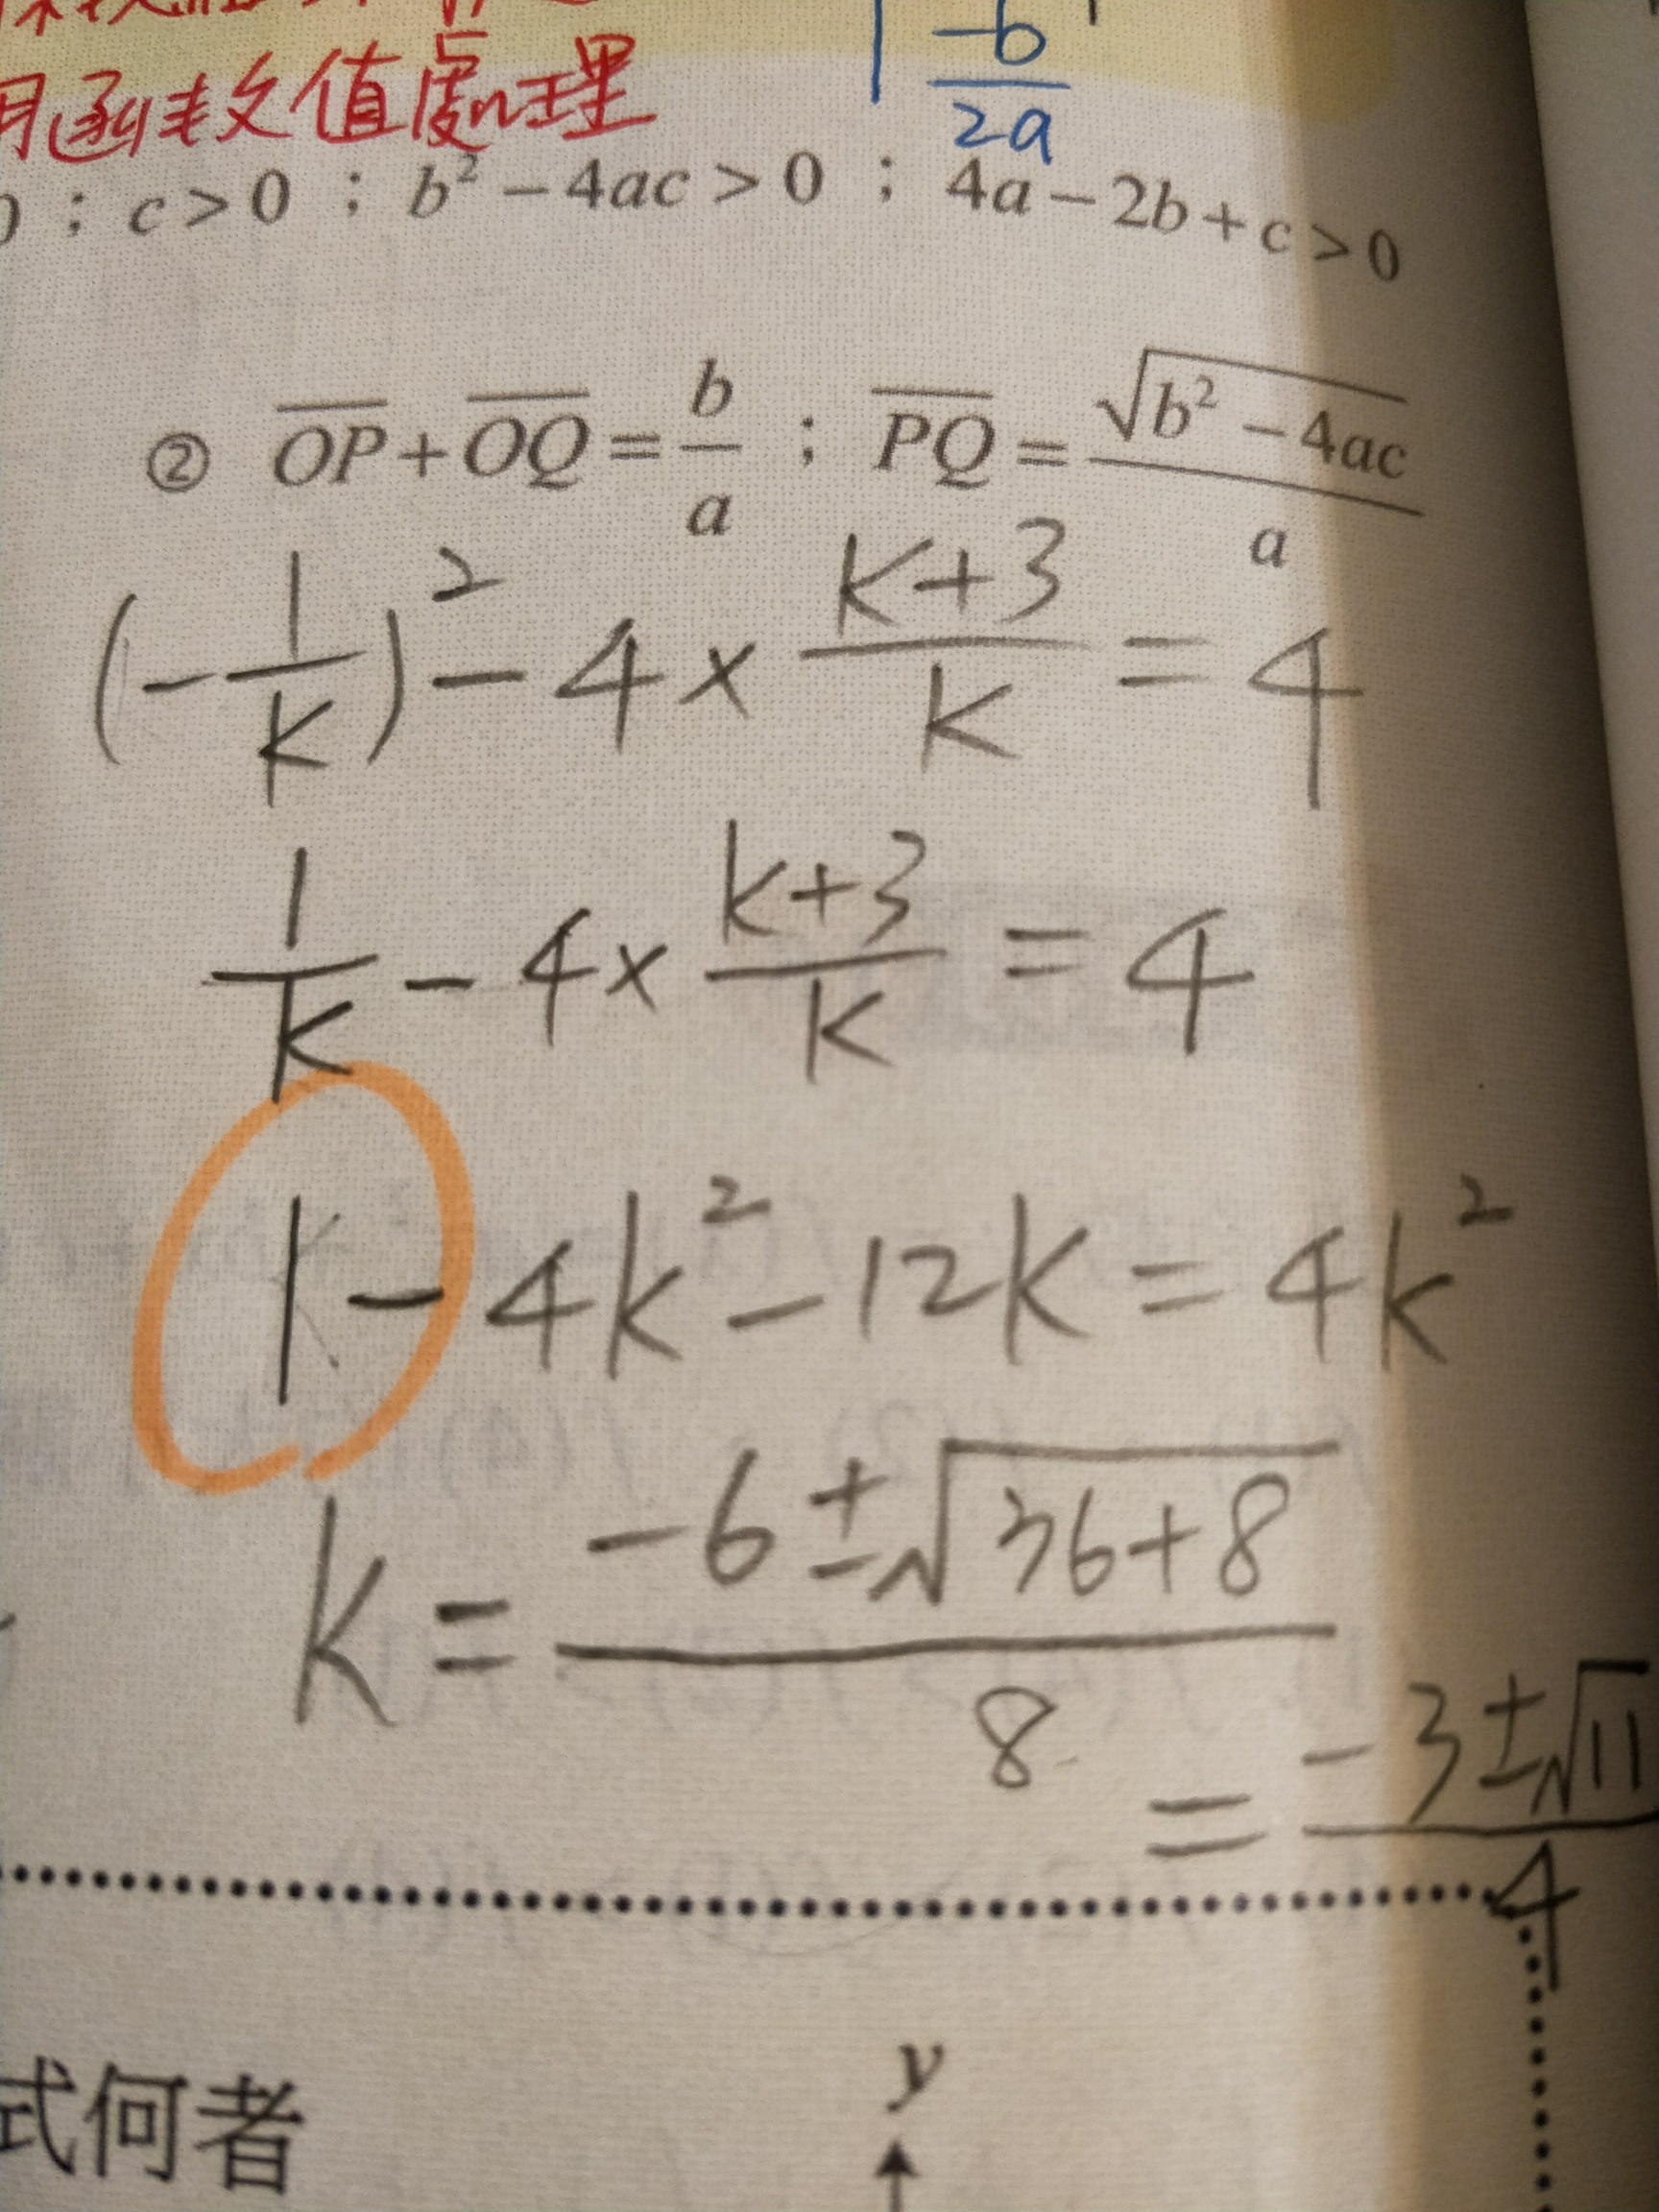 用函數值處理
-b/2a
; c > 0 ; b² − 4ac > 0 ; 4a − 2b + c > 0
② OP + OQ = b/a ; PQ = √(b² − 4ac)/a
(-1/k)² - 4 × (k+3)/k = 4
1/k - 4 × (k+3)/k = 4
1 - 4k² - 12k = 4k²
k = (-6 ± √(36+8))/8
= (-3 ± √11)/4
式何者
y